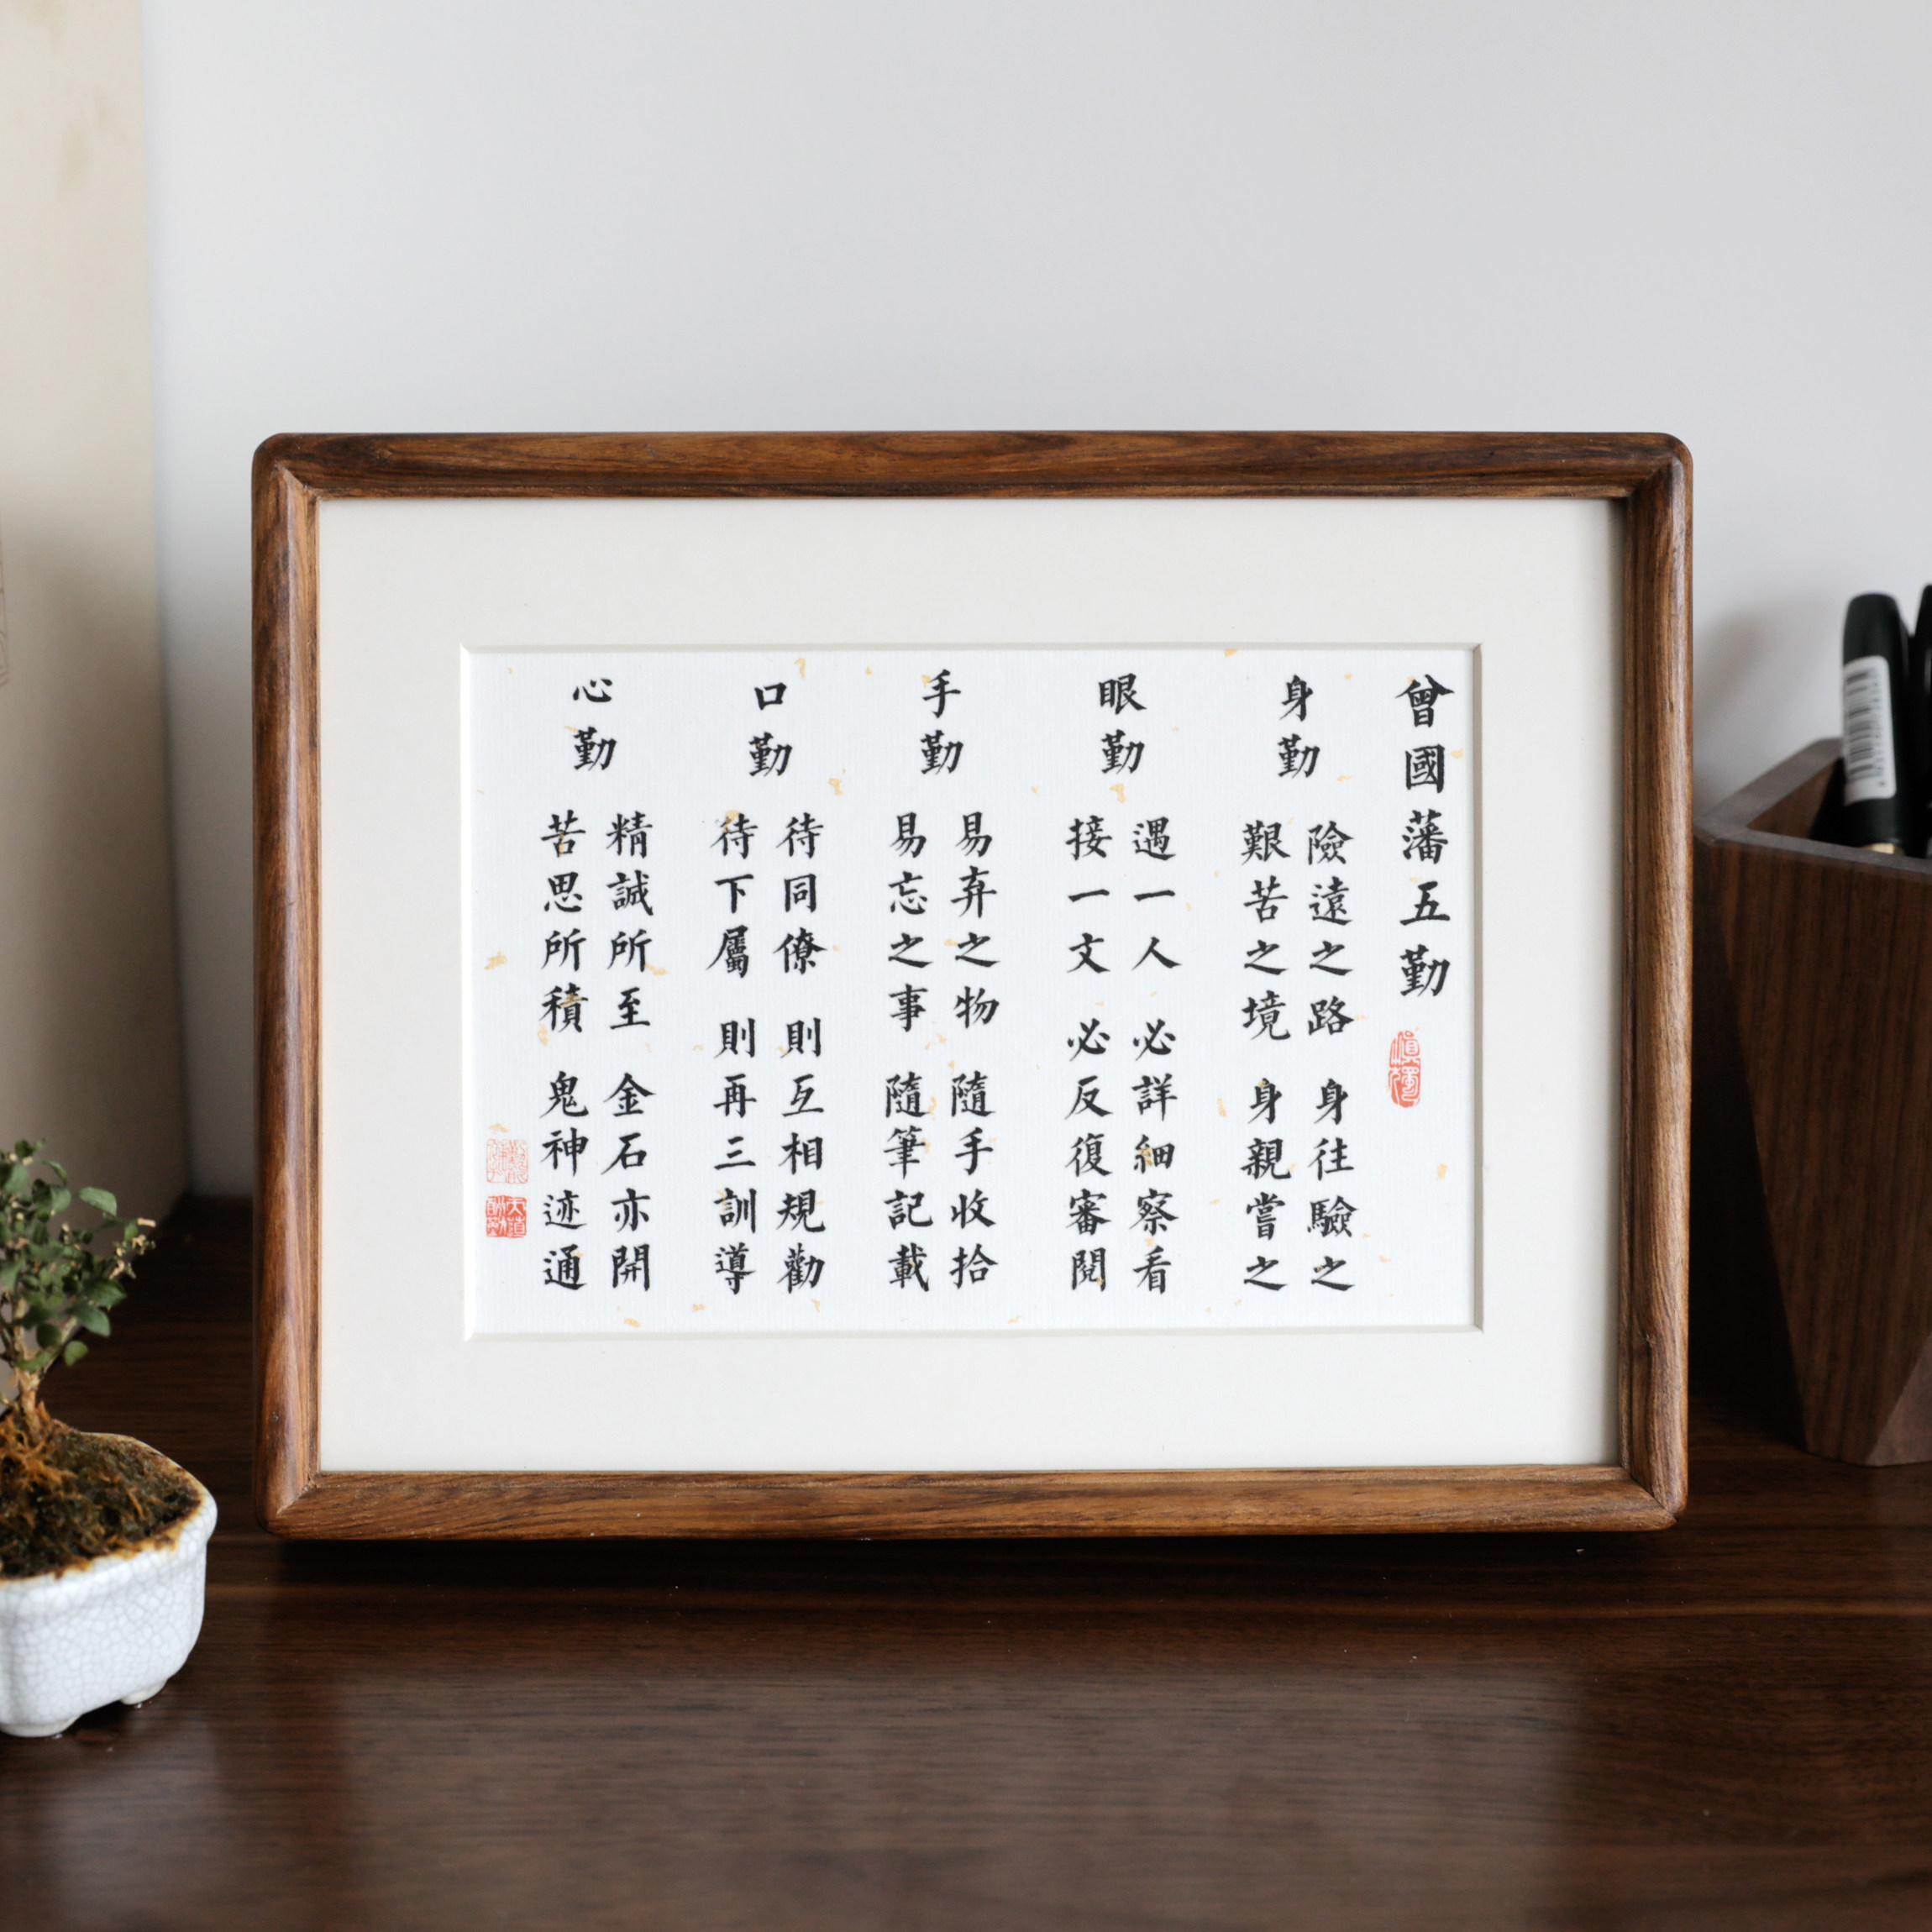 曾國藩五勤
身勤
險遠之路 身往驗之
艱苦之境 身親嘗之
眼勤
遇一人 必詳細察看
接一文 必反復審閱
手勤
易弃之物 隨手收拾
易忘之事 隨筆記載
口勤
待同僚 則互相規勸
待下屬 則再三訓導
心勤
精誠所至 金石亦開
苦思所積 鬼神迹通
天道酬勤